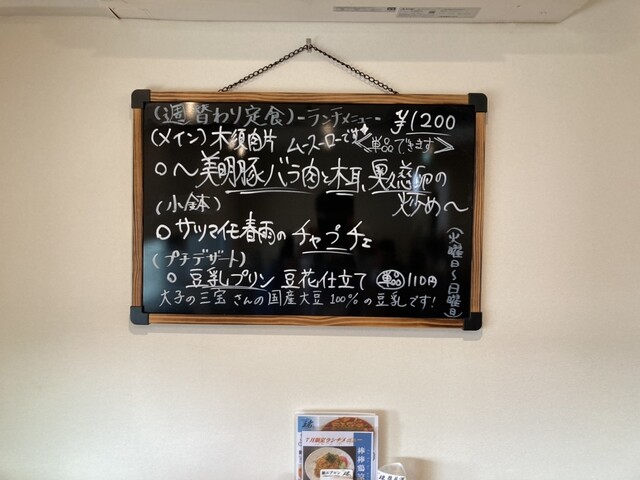 (週替わり定食)-ランチメニュー- ¥1200
(メイン) 木須肉片 ムースーローです 《単品できます》
○〜美明豚バラ肉と木耳、奥久慈卵の
炒め〜
(小鉢)
○ サツマイモ春雨の チャプチェ
(プチデザート)
○ 豆乳プリン 豆花仕立て 単品 110円
大子の三宝さんの国産大豆100%の豆乳です!
(火曜日〜日曜日)
7月限定ランチメニュー
棒棒鶏